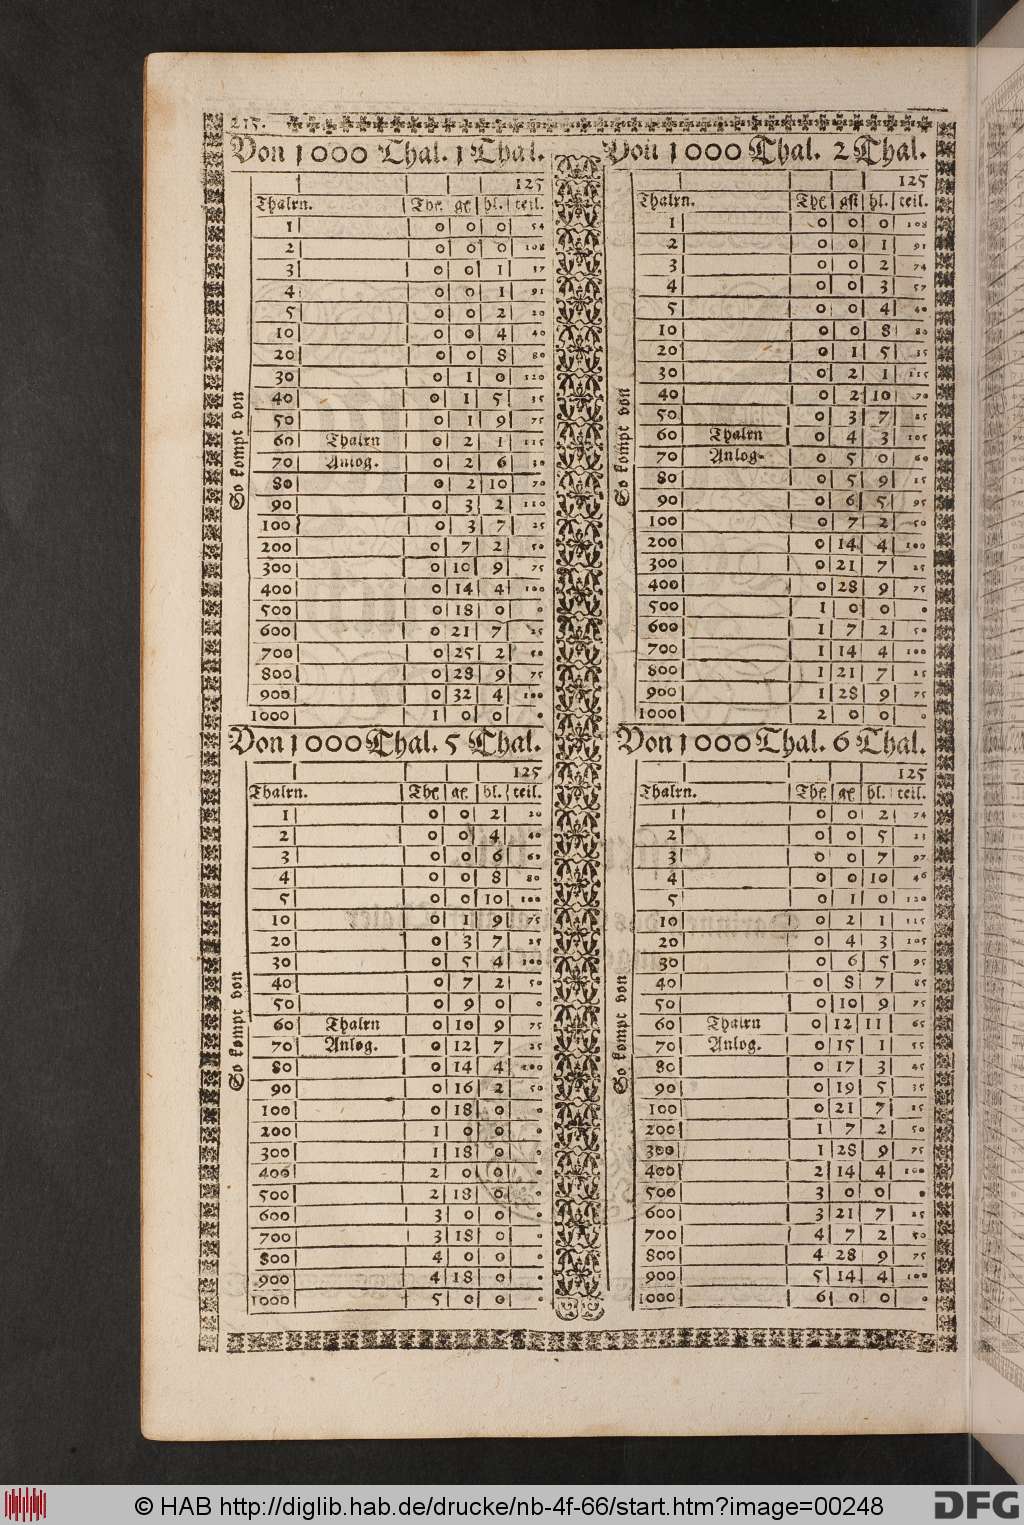 215.
Von 1000 Thal. 1 Thal.
125
Thalrn. Thl gl hl. teil.
1 0 0 0 54
2 0 0 0 108
3 0 0 1 37
4 0 0 1 91
5 0 0 2 20
10 0 0 4 40
20 0 0 8 80
30 0 1 0 120
40 0 1 5 35
50 0 1 9 75
60 Thalrn 0 2 1 115
70 Anlog. 0 2 6 30
80 0 2 10 70
90 0 3 2 110
100 0 3 7 25
200 0 7 2 50
300 0 10 9 75
400 0 14 4 100
500 0 18 0 0
600 0 21 7 25
700 0 25 2 50
800 0 28 9 75
900 0 32 4 100
1000 1 0 0 0
So kompt von
Von 1000 Thal. 2 Thal.
125
Thalrn. Thl gl hl. teil.
1 0 0 0 108
2 0 0 1 91
3 0 0 2 74
4 0 0 3 57
5 0 0 4 40
10 0 0 8 80
20 0 1 5 35
30 0 2 1 115
40 0 2 10 70
50 0 3 7 25
60 Thalrn 0 4 3 105
70 Anlog. 0 5 0 60
80 0 5 9 15
90 0 6 5 95
100 0 7 2 50
200 0 14 4 100
300 0 21 7 25
400 0 28 9 75
500 1 0 0 0
600 1 7 2 50
700 1 14 4 100
800 1 21 7 25
900 1 28 9 75
1000 2 0 0 0
So kompt von
Von 1000 Thal. 5 Thal.
125
Thalrn. Thl gl hl. teil.
1 0 0 2 20
2 0 0 4 40
3 0 0 6 60
4 0 0 8 80
5 0 0 10 100
10 0 1 9 75
20 0 3 7 25
30 0 5 4 100
40 0 7 2 50
50 0 9 0 0
60 Thalrn 0 10 9 75
70 Anlog. 0 12 7 25
80 0 14 4 100
90 0 16 2 50
100 0 18 0 0
200 1 0 0 0
300 1 18 0 0
400 2 0 0 0
500 2 18 0 0
600 3 0 0 0
700 3 18 0 0
800 4 0 0 0
900 4 18 0 0
1000 5 0 0 0
So kompt von
Von 1000 Thal. 6 Thal.
125
Thalrn. Thl gl hl. teil.
1 0 0 2 74
2 0 0 5 23
3 0 0 7 97
4 0 0 10 46
5 0 1 0 120
10 0 2 1 115
20 0 4 3 105
30 0 6 5 95
40 0 8 7 85
50 0 10 9 75
60 Thalrn 0 12 11 65
70 Anlog. 0 15 1 55
80 0 17 3 45
90 0 19 5 35
100 0 21 7 25
200 1 7 2 50
300 1 28 9 75
400 2 14 4 100
500 3 0 0 0
600 3 21 7 25
700 4 7 2 50
800 4 28 9 75
900 5 14 4 100
1000 6 0 0 0
So kompt von
© HAB http://diglib.hab.de/drucke/nb-4f-66/start.htm?image=00248
DFG